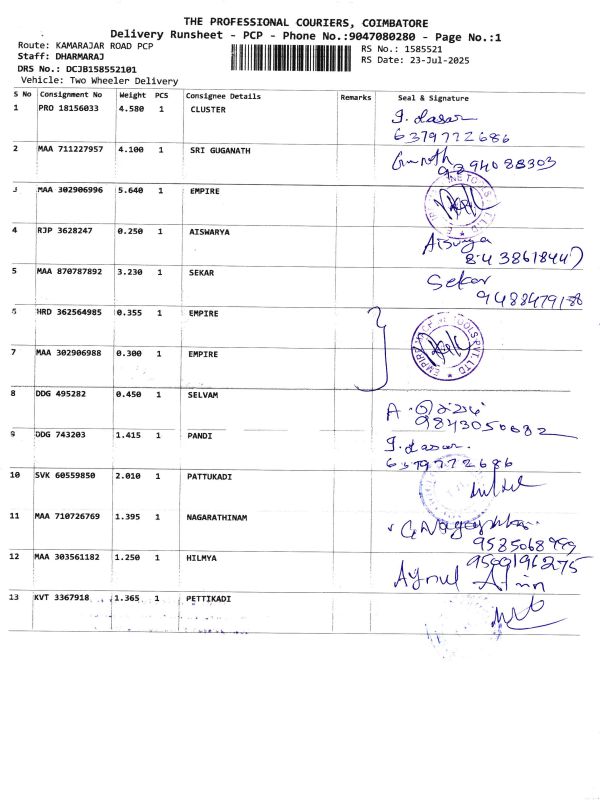 THE PROFESSIONAL COURIERS, COIMBATORE
Delivery Runsheet - PCP - Phone No.:9047080280 - Page No.:1
Route: KAMARAJAR ROAD PCP
RS No.: 1585521
Staff: DHARMARAJ
RS Date: 23-Jul-2025
DRS No.: DCJB158552101
Vehicle: Two Wheeler Delivery
S No Consignment No Weight PCS Consignee Details Remarks Seal & Signature
1 PRO 18156033 4.580 1 CLUSTER
6379772686
2 MAA 711227957 4.100 1 SRI GUGANATH
3 MAA 302906996 5.640 1 EMPIRE
4 RJP 3628247 0.250 1 AISWARYA
5 MAA 870787892 3.230 1 SEKAR Sekar
6 HRD 362564985 0.355 1 EMPIRE
7 MAA 302906988 0.300 1 EMPIRE
EMPIRE MACHINE TOOLS PVT. LTD
8 DDG 495282 0.450 1 SELVAM
9843050082
9 DDG 743203 1.415 1 PANDI
6379772686
10 SVK 60559850 2.010 1 PATTUKADI
11 MAA 710726769 1.395 1 NAGARATHINAM
12 MAA 303561182 1.250 1 HILMYA
13 KVT 3367918 1.365 1 PETTIKADI